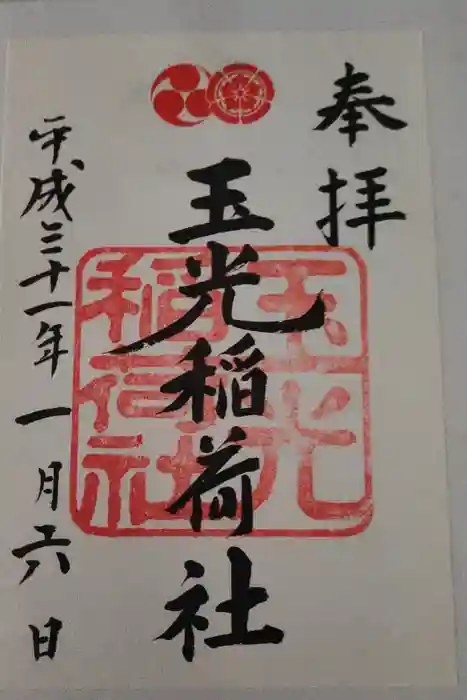 奉拝
玉光稲荷社
玉光
稲荷社
平成三十一年一月六日